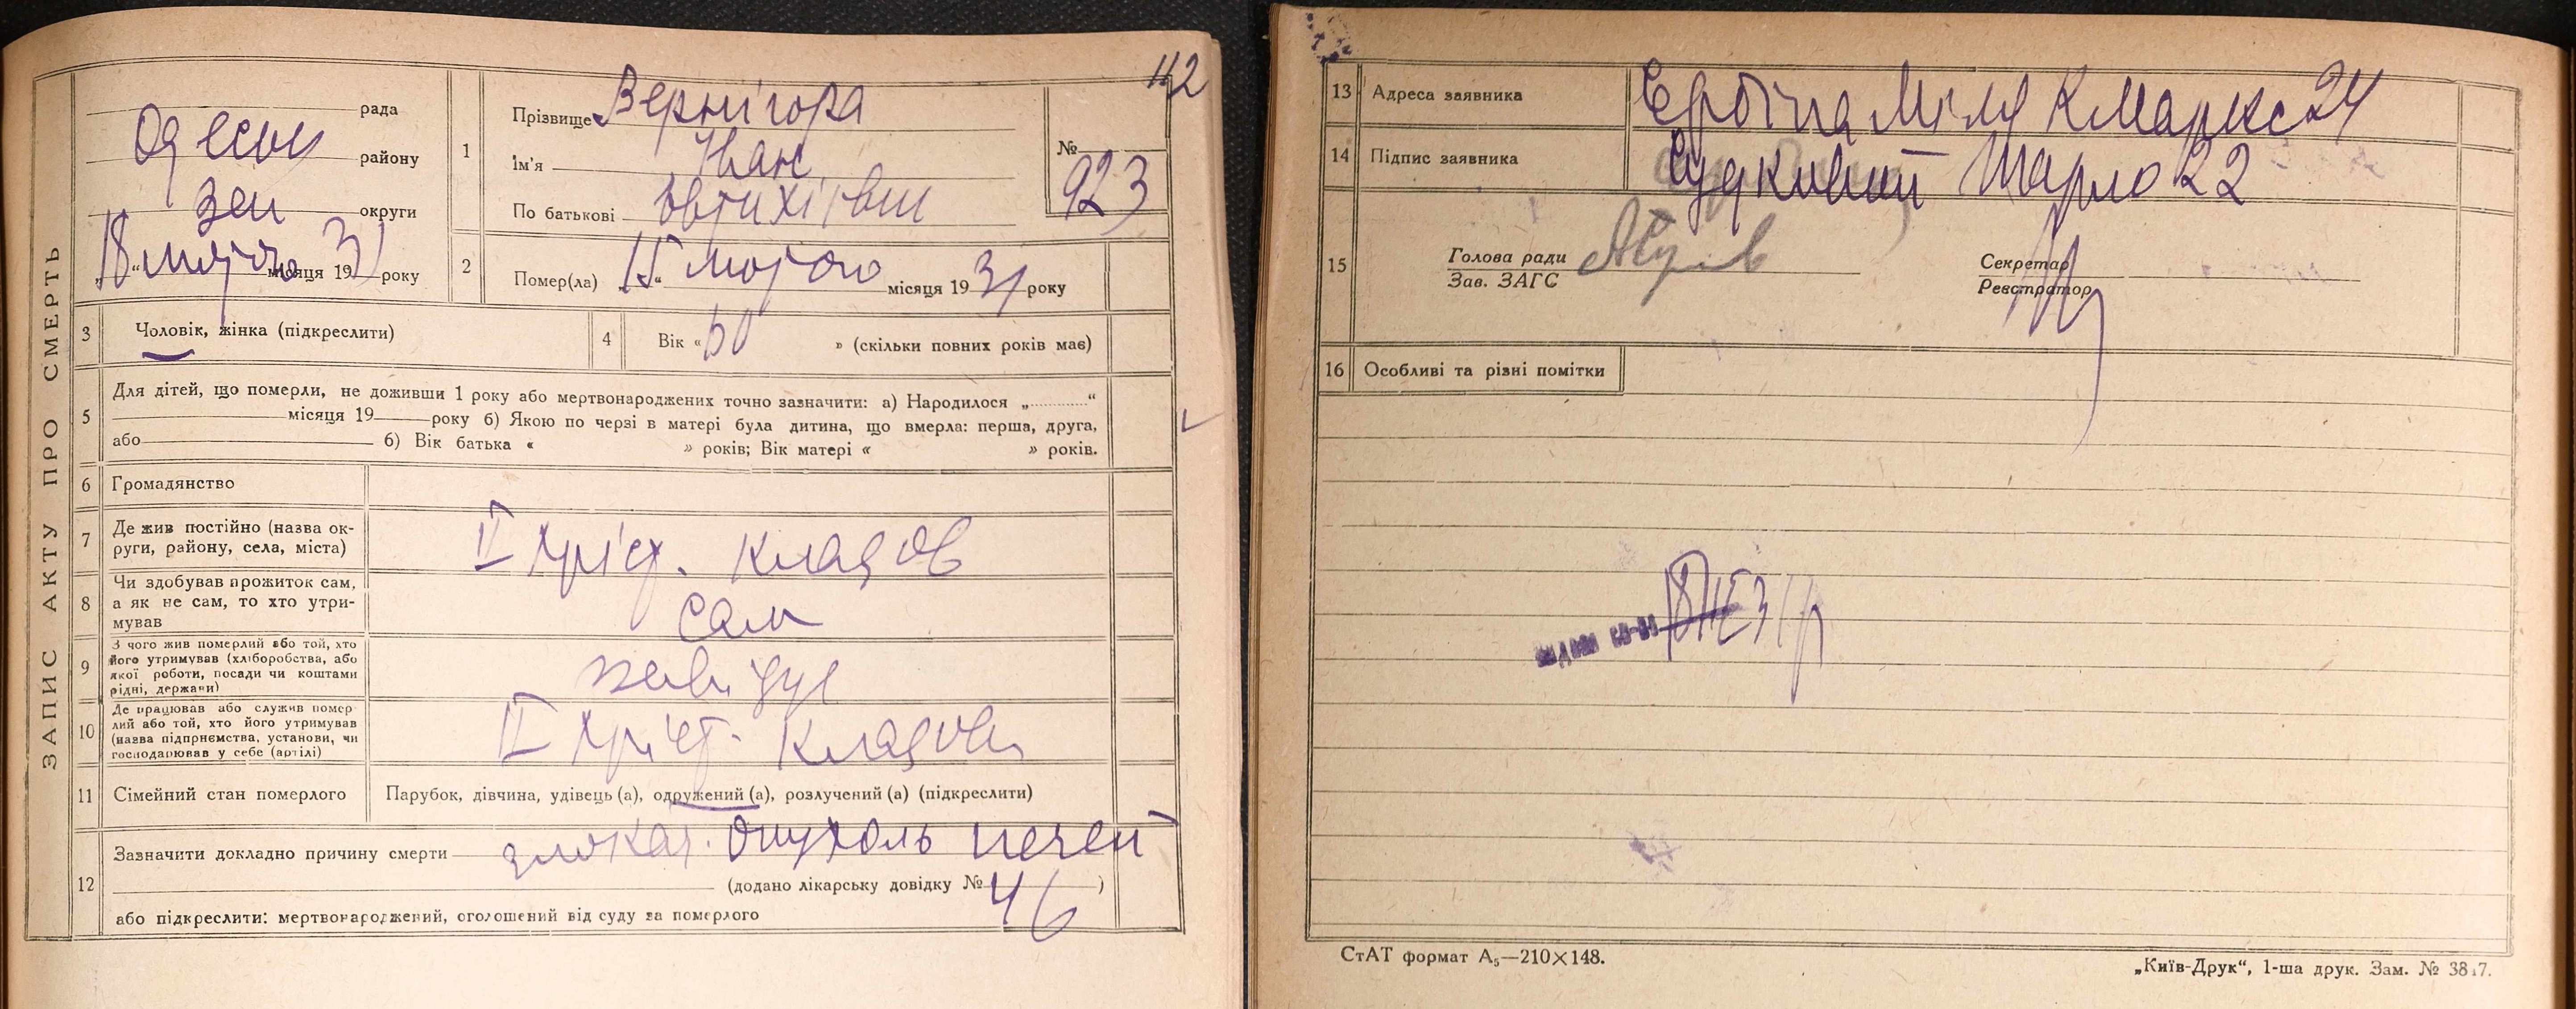 112
ЗАПИС АКТУ ПРО СМЕРТЬ
рада
Одеськ району
округи
„18“ лютого місяця 1931 року
1 Прізвище Вернігора
Ім'я Іван
По батькові Овтихієвич
№ 923
2 Помер(ла) „15“ лютого місяця 1931 року
3 Чоловік, жінка (підкреслити)
4 Вік « 50 » (скільки повних років має)
5 Для дітей, що померли, не доживши 1 року або мертвонароджених точно зазначити: а) Народилося „ “
місяця 19 року б) Якою по черзі в матері була дитина, що вмерла: перша, друга,
або б) Вік батька « » років; Вік матері « » років.
6 Громадянство
7 Де жив постійно (назва ок-
руги, району, села, міста)
II хріст. кладов
8 Чи здобував прожиток сам,
а як не сам, то хто утри-
мував
сам
9 З чого жив померлий або той, хто
його утримував (хліборобства, або
якої роботи, посади чи коштами
рідні, держави)
завідує
10 Де працював або служив помер-
лий або той, хто його утримував
(назва підприємства, установи, чи
господарював у себе (артілі)
II хріст. кладов
11 Сімейний стан померлого
Парубок, дівчина, удівець (а), одружений (а), розлучений (а) (підкреслити)
12 Зазначити докладно причину смерти злокач. опухоль печен
(додано лікарську довідку № 46 )
або підкреслити: мертвонароджений, оголошений від суду за померлого
13 Адреса заявника К Маркс 24
14 Підпис заявника 22
15 Голова ради
Зав. ЗАГС
Секретар
Реєстратор
16 Особливі та різні помітки
31 р
СтАТ формат А5—210×148.
„Київ-Друк“, 1-ша друк. Зам. № 3817.